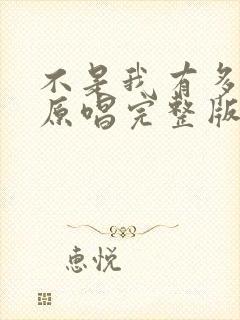 不是我有多
原唱完整版
惠悦